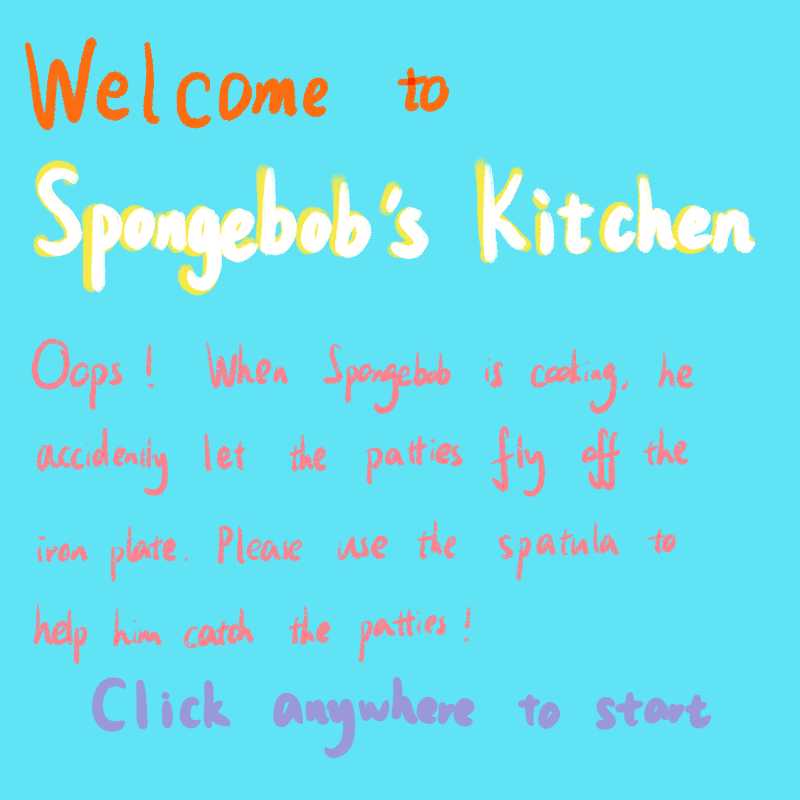 Welcome to
Spongebob's Kitchen
Oops! When Spongebob is cooking, he
accidently let the patties fly off the
iron plate. Please use the spatula to
help him catch the patties!
Click anywhere to start